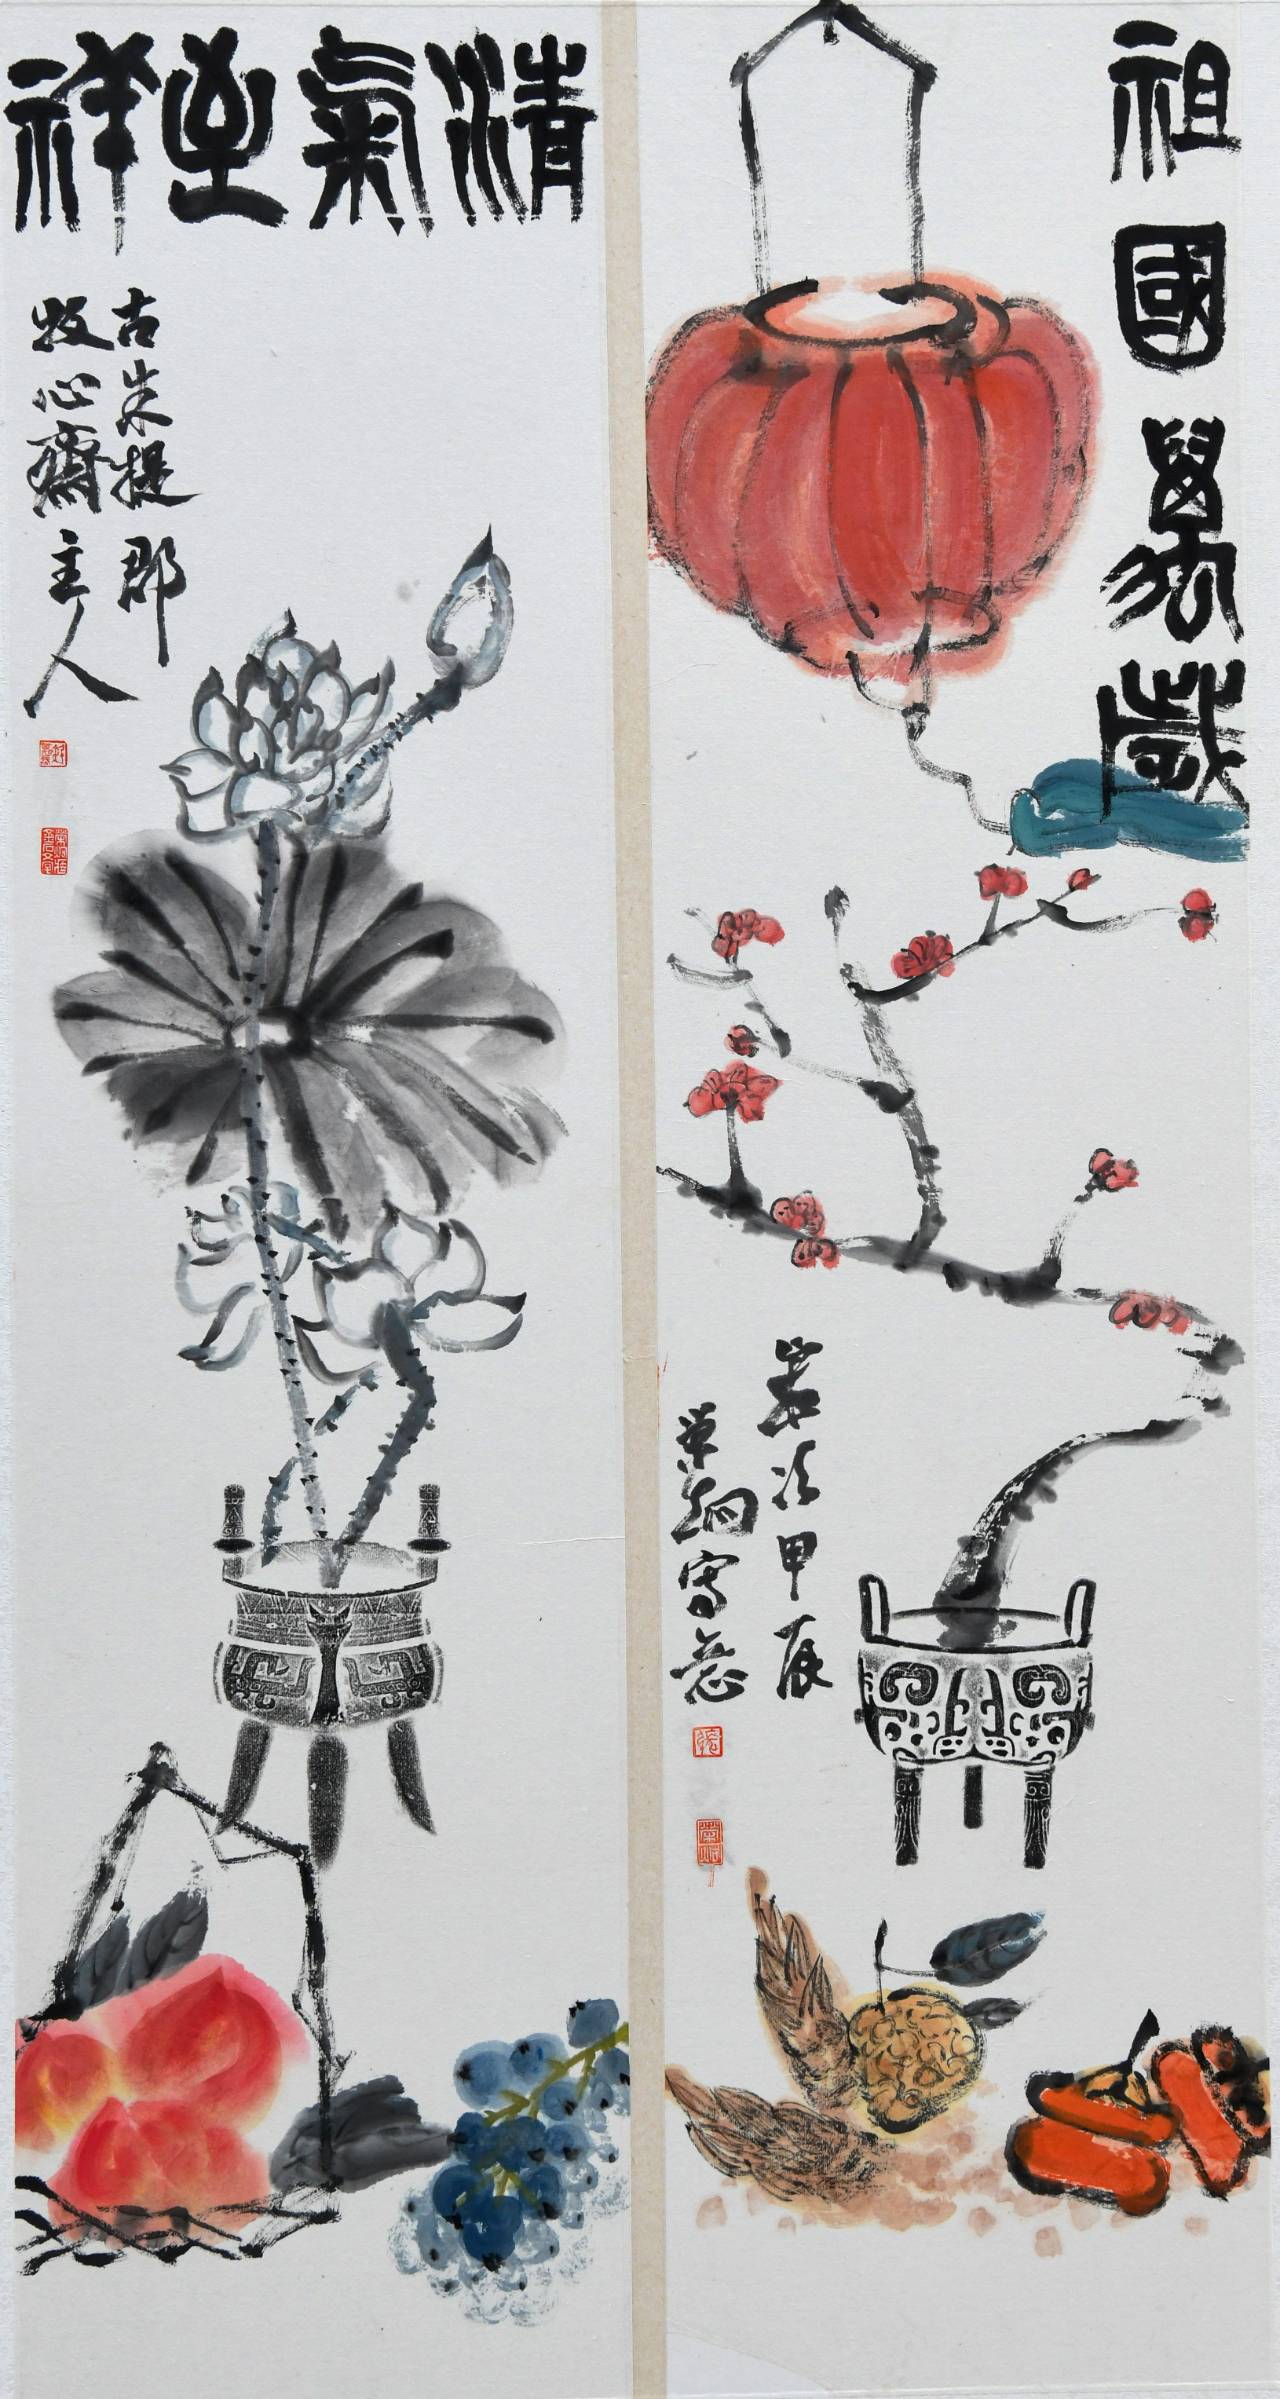 祖國萬歲
歲次甲辰
榮炯寫意
清氣呈祥
古朱提郡
牧心齋主人